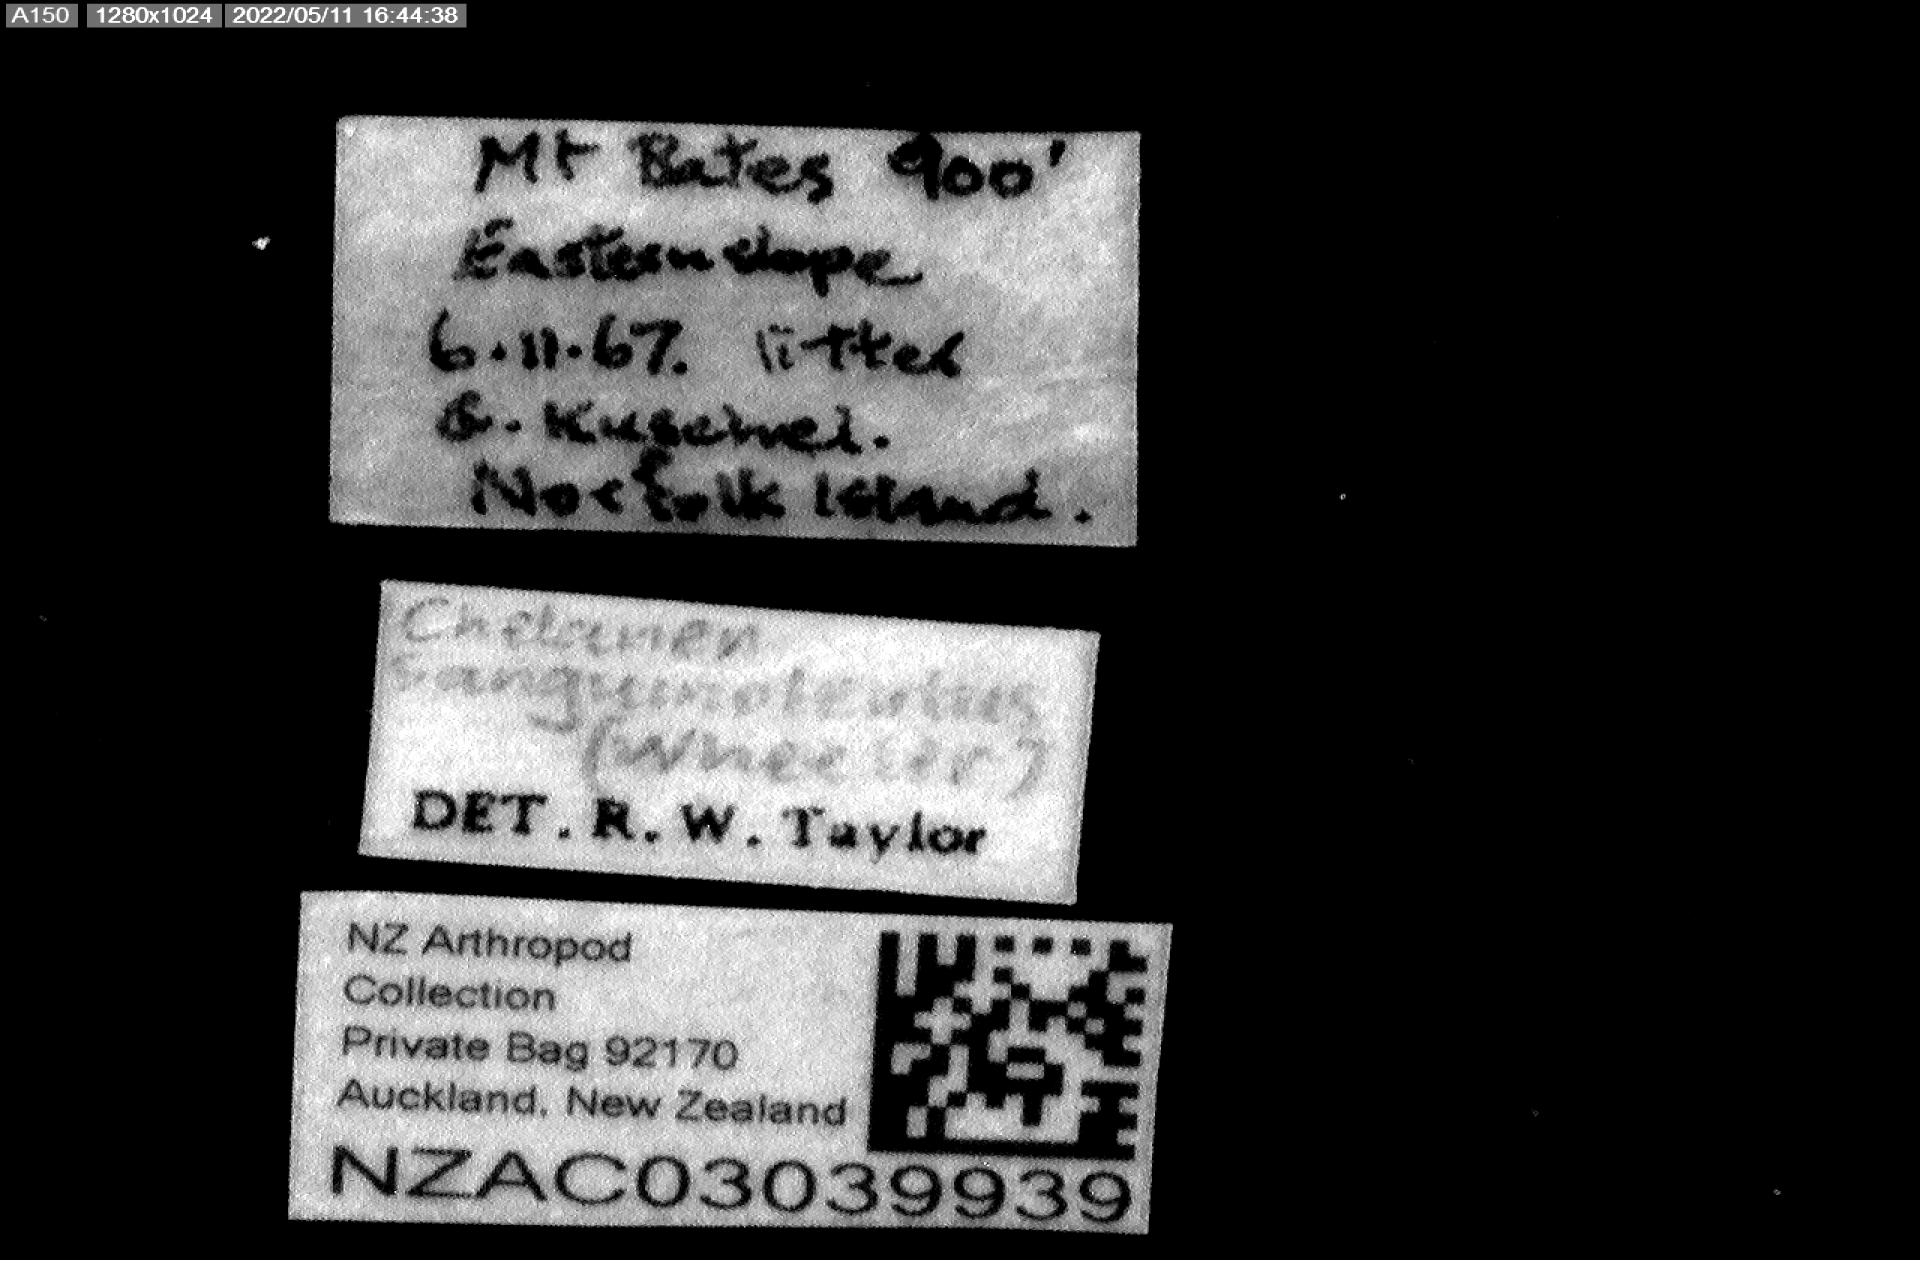 A150 1280x1024 2022/05/11 16:44:38
Mt Bates 900'
Eastern slope
6.11.67. litter
G. Kuschel.
Norfolk Island.
Chelaner
sanguinolentus
(Wheeler)
DET. R. W. Taylor
NZ Arthropod
Collection
Private Bag 92170
Auckland, New Zealand
NZAC03039939